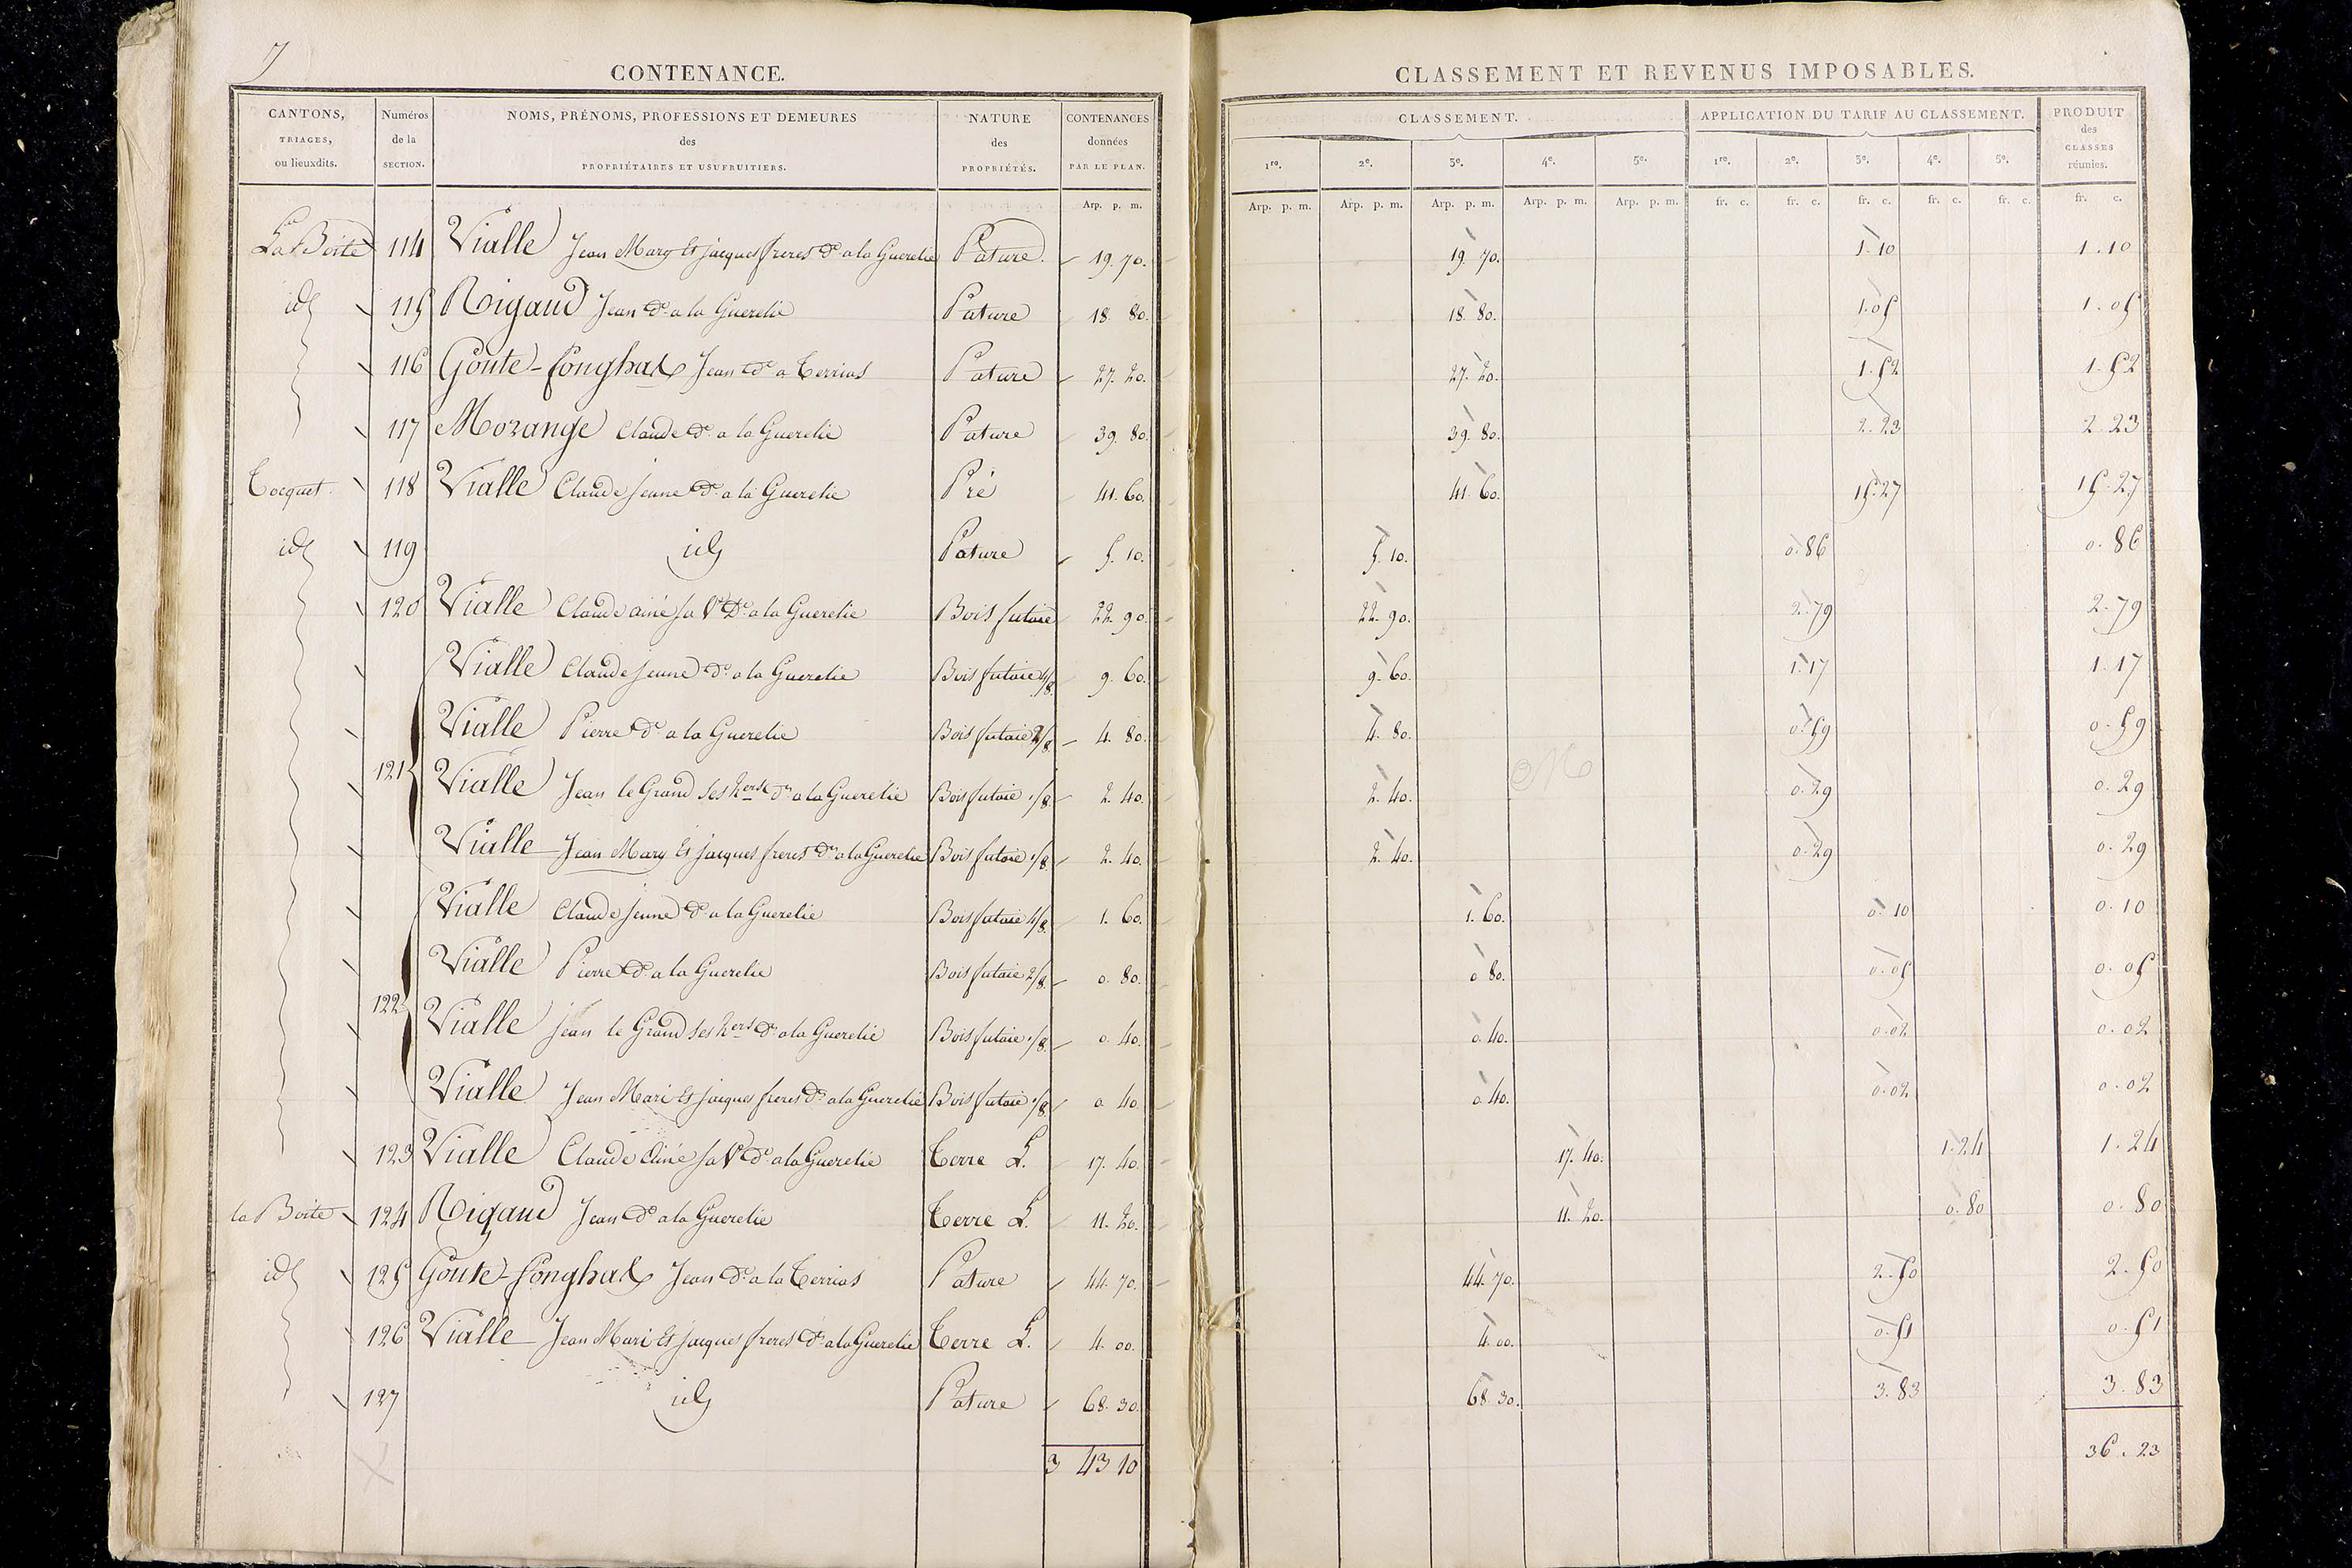 7
CONTENANCE.
CANTONS, TRIAGES, ou lieuxdits. Numéros de la SECTION. NOMS, PRÉNOMS, PROFESSIONS ET DEMEURES des PROPRIÉTAIRES ET USUFRUITIERS. NATURE des PROPRIÉTÉS. CONTENANCES données PAR LE PLAN.
Arp. p. m.
CLASSEMENT ET REVENUS IMPOSABLES.
CLASSEMENT. APPLICATION DU TARIF AU CLASSEMENT. PRODUIT des CLASSES réunies.
1re. 2e. 3e. 4e. 5e. 1re. 2e. 3e. 4e. 5e.
Arp. p. m. Arp. p. m. Arp. p. m. Arp. p. m. Arp. p. m. fr. c. fr. c. fr. c. fr. c. fr. c. fr. c.
La Boite 114 Vialle Jean Mary Et jacques freres de a la Guerelie Pature 19. 70. 19. 70. 1. 10 1. 10
id 115 Rigaud Jean de a la Guerelie Pature 18. 80. 18. 80. 1. 05 1. 05
116 Goute-Longhal Jean de a Terrias Pature 27. 20. 27. 20. 1. 52 1. 52
117 Morange Claude de a la Guerelie Pature 39. 80. 39. 80. 2. 23 2. 23
Tocquet 118 Vialle Claude jeune de a la Guerelie Pré 41. 60. 41. 60. 15. 27 15. 27
id 119 id Pature 5. 10. 5. 10. 0. 86 0. 86
120 Vialle Claude ainé sa Ve de a la Guerelie Bois futaie 22. 90. 22. 90. 2. 79 2. 79
Vialle Claude jeune de a la Guerelie Bois futaie 4/8 9. 60. 9. 60. 1. 17 1. 17
Vialle Pierre de a la Guerelie Bois futaie 2/8 4. 80. 4. 80. 0. 59 0. 59
121 Vialle Jean le Grand ses hers de a la Guerelie Bois futaie 1/8 2. 40. 2. 40. 0. 29 0. 29
Vialle Jean Mary Et jacques freres de a la Guerelie Bois futaie 1/8 2. 40. 2. 40. 0. 29 0. 29
Vialle Claude jeune de a la Guerelie Bois futaie 4/8 1. 60. 1. 60. 0. 10 0. 10
Vialle Pierre de a la Guerelie Bois futaie 2/8 0. 80. 0 80. 0. 05 0. 05
122 Vialle jean le Grand ses hers de a la Guerelie Bois futaie 1/8 0. 40. 0. 40. 0. 02 0. 02
Vialle Jean Mari Et jacques freres de a la Guerelie Bois futaie 1/8 0 40 0 40. 0. 02 0. 02
123 Vialle Claude Ainé sa Ve de a la Guerelie Terre L. 17. 40. 17. 40. 1. 24 1. 24
la Boite 124 Rigaud Jean de a la Guerelie Terre L. 11. 20. 11. 20. 0. 80 0. 80
id 125 Goute-Longhal Jean de a la Terrias Pature 44. 70. 44. 70. 2. 50 2. 50
126 Vialle Jean Mari Et jacques freres de a la Guerelie Terre L. 4. 00. 4. 00. 0. 51 0. 51
127 id Pature 68. 30. 68. 30. 3. 83 3. 83
3 43 10 36. 23